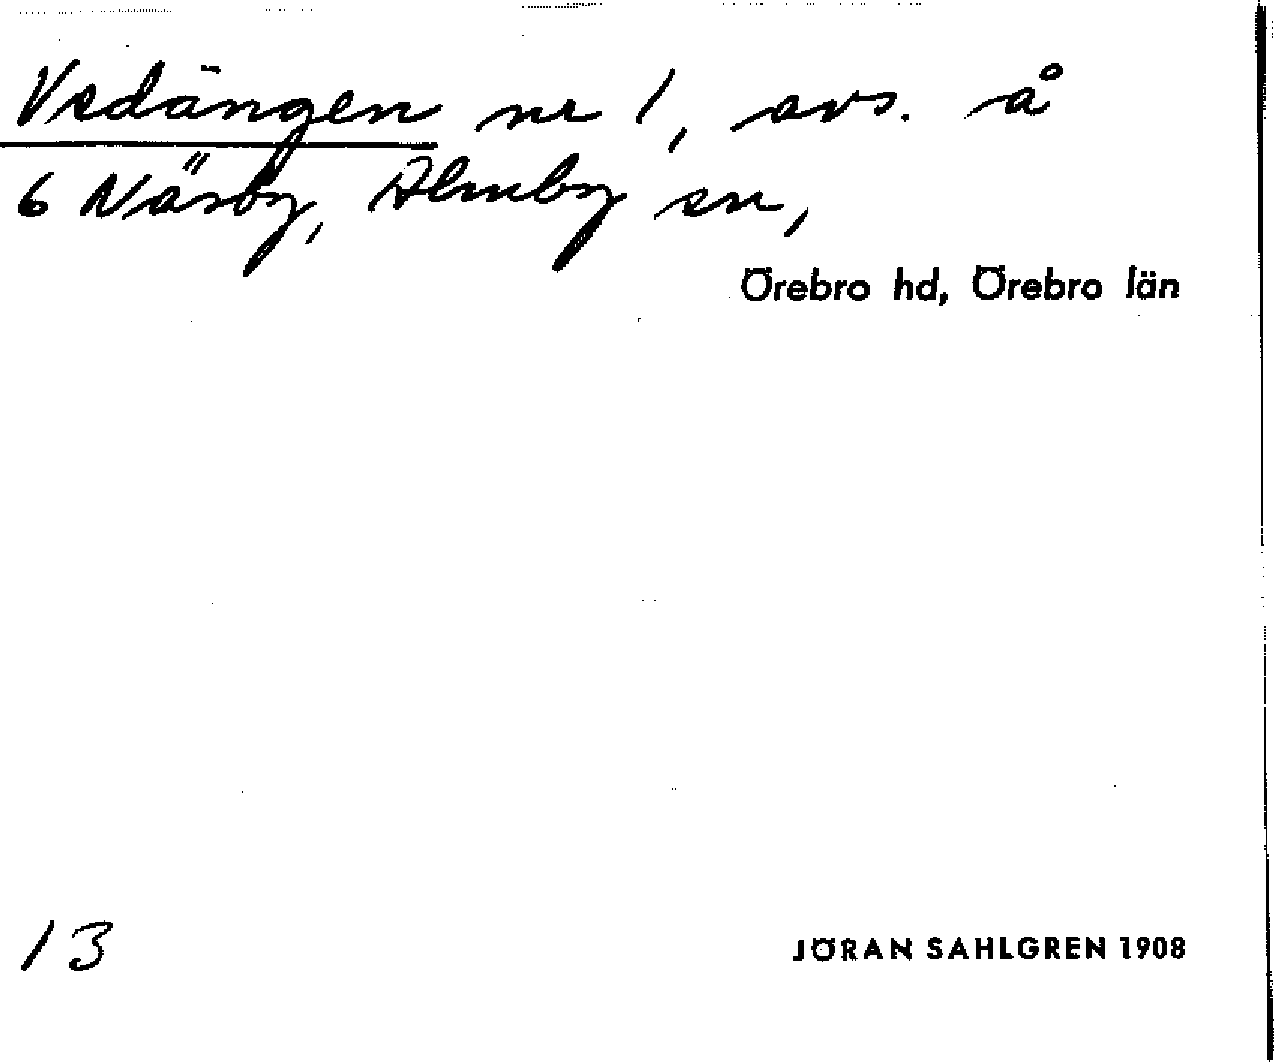 Vedängen nr 1, avs. å
6 Näsby, Almby sn,
Örebro hd, Örebro län
13
JÖRAN SAHLGREN 1908